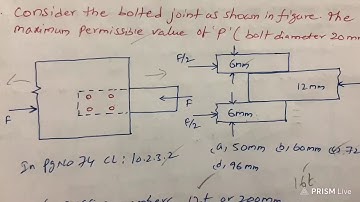 Consider the bolted joint as shown in figure. The
maximum permissible value of 'P' (bolt diameter 20mm
F/2
6mm
12mm
F
F
F/2
6mm
In Pg No 74 CL: 10.2.3.2
(a, 50mm (b, 60mm (c, 72
(d, 96mm
16t
12t or 200mm
PRISM Live